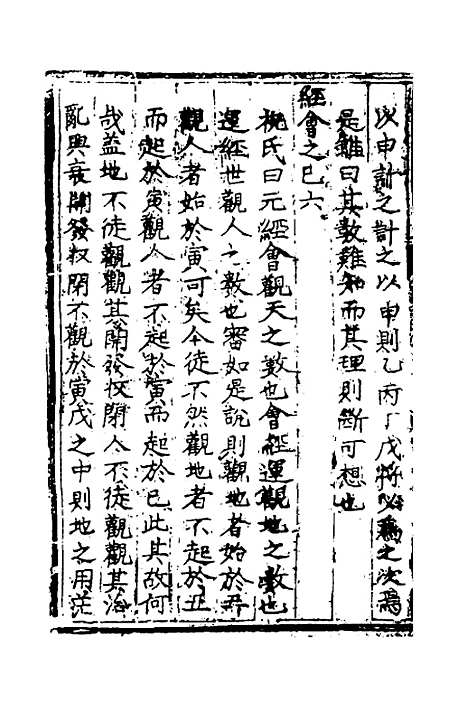 以申計之計之以申則乙丙丁戊將以為之次焉
是雖曰其数難知而其理則斷可想也
經會之巳六
祝氏曰元經會觀天之數也會經運觀地之數也
運經世觀人之數也審如是說則觀地者始於丑
觀人者始於寅可矣今徒不然觀地者不起於丑
而起於寅觀人者不起於寅而起於巳此其故何
哉盖地不徒觀觀其開發收閉人不徒觀觀其治
亂興衰開發收閉不觀於寅戌之中則地之用茫